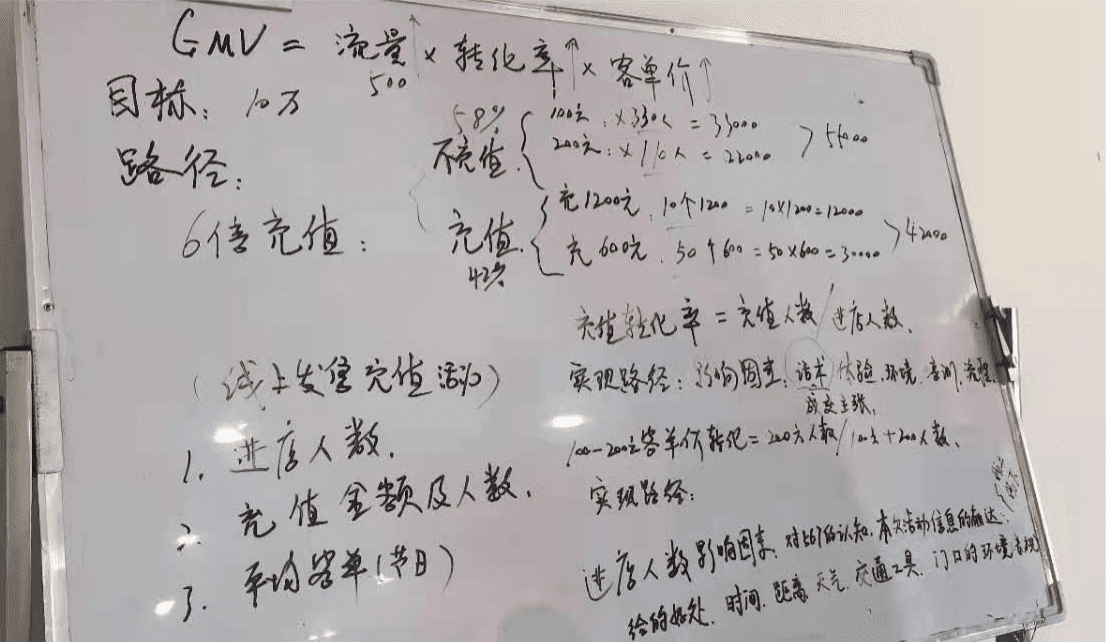 GMV = 流量↑ × 转化率↑ × 客单价↑
500
目标: 10万
58%
不充值 { 100元: ×330人 = 33000
200元: ×110人 = 22000 > 55000
路径:
6倍充值: 充值 { 充1200元. 10个1200 = 10×1200=12000
42% 充600元. 50个600 = 50×600=30000 > 42000
充值转化率 = 充值人数/进店人数.
(线上发售充值活动)
实现路径: 影响因素: 话术 体验. 环境. 流程.
成交主张.
1. 进店人数.
2. 充值金额及人数.
3. 平均客单(节日)
100-200元客单价转化=200元人数/100元+200人数.
实现路径:
进店人数影响因素. 对567的认知. 本次活动信息的触达.
给的好处. 时间. 距离. 天气. 交通工具. 门口的环境